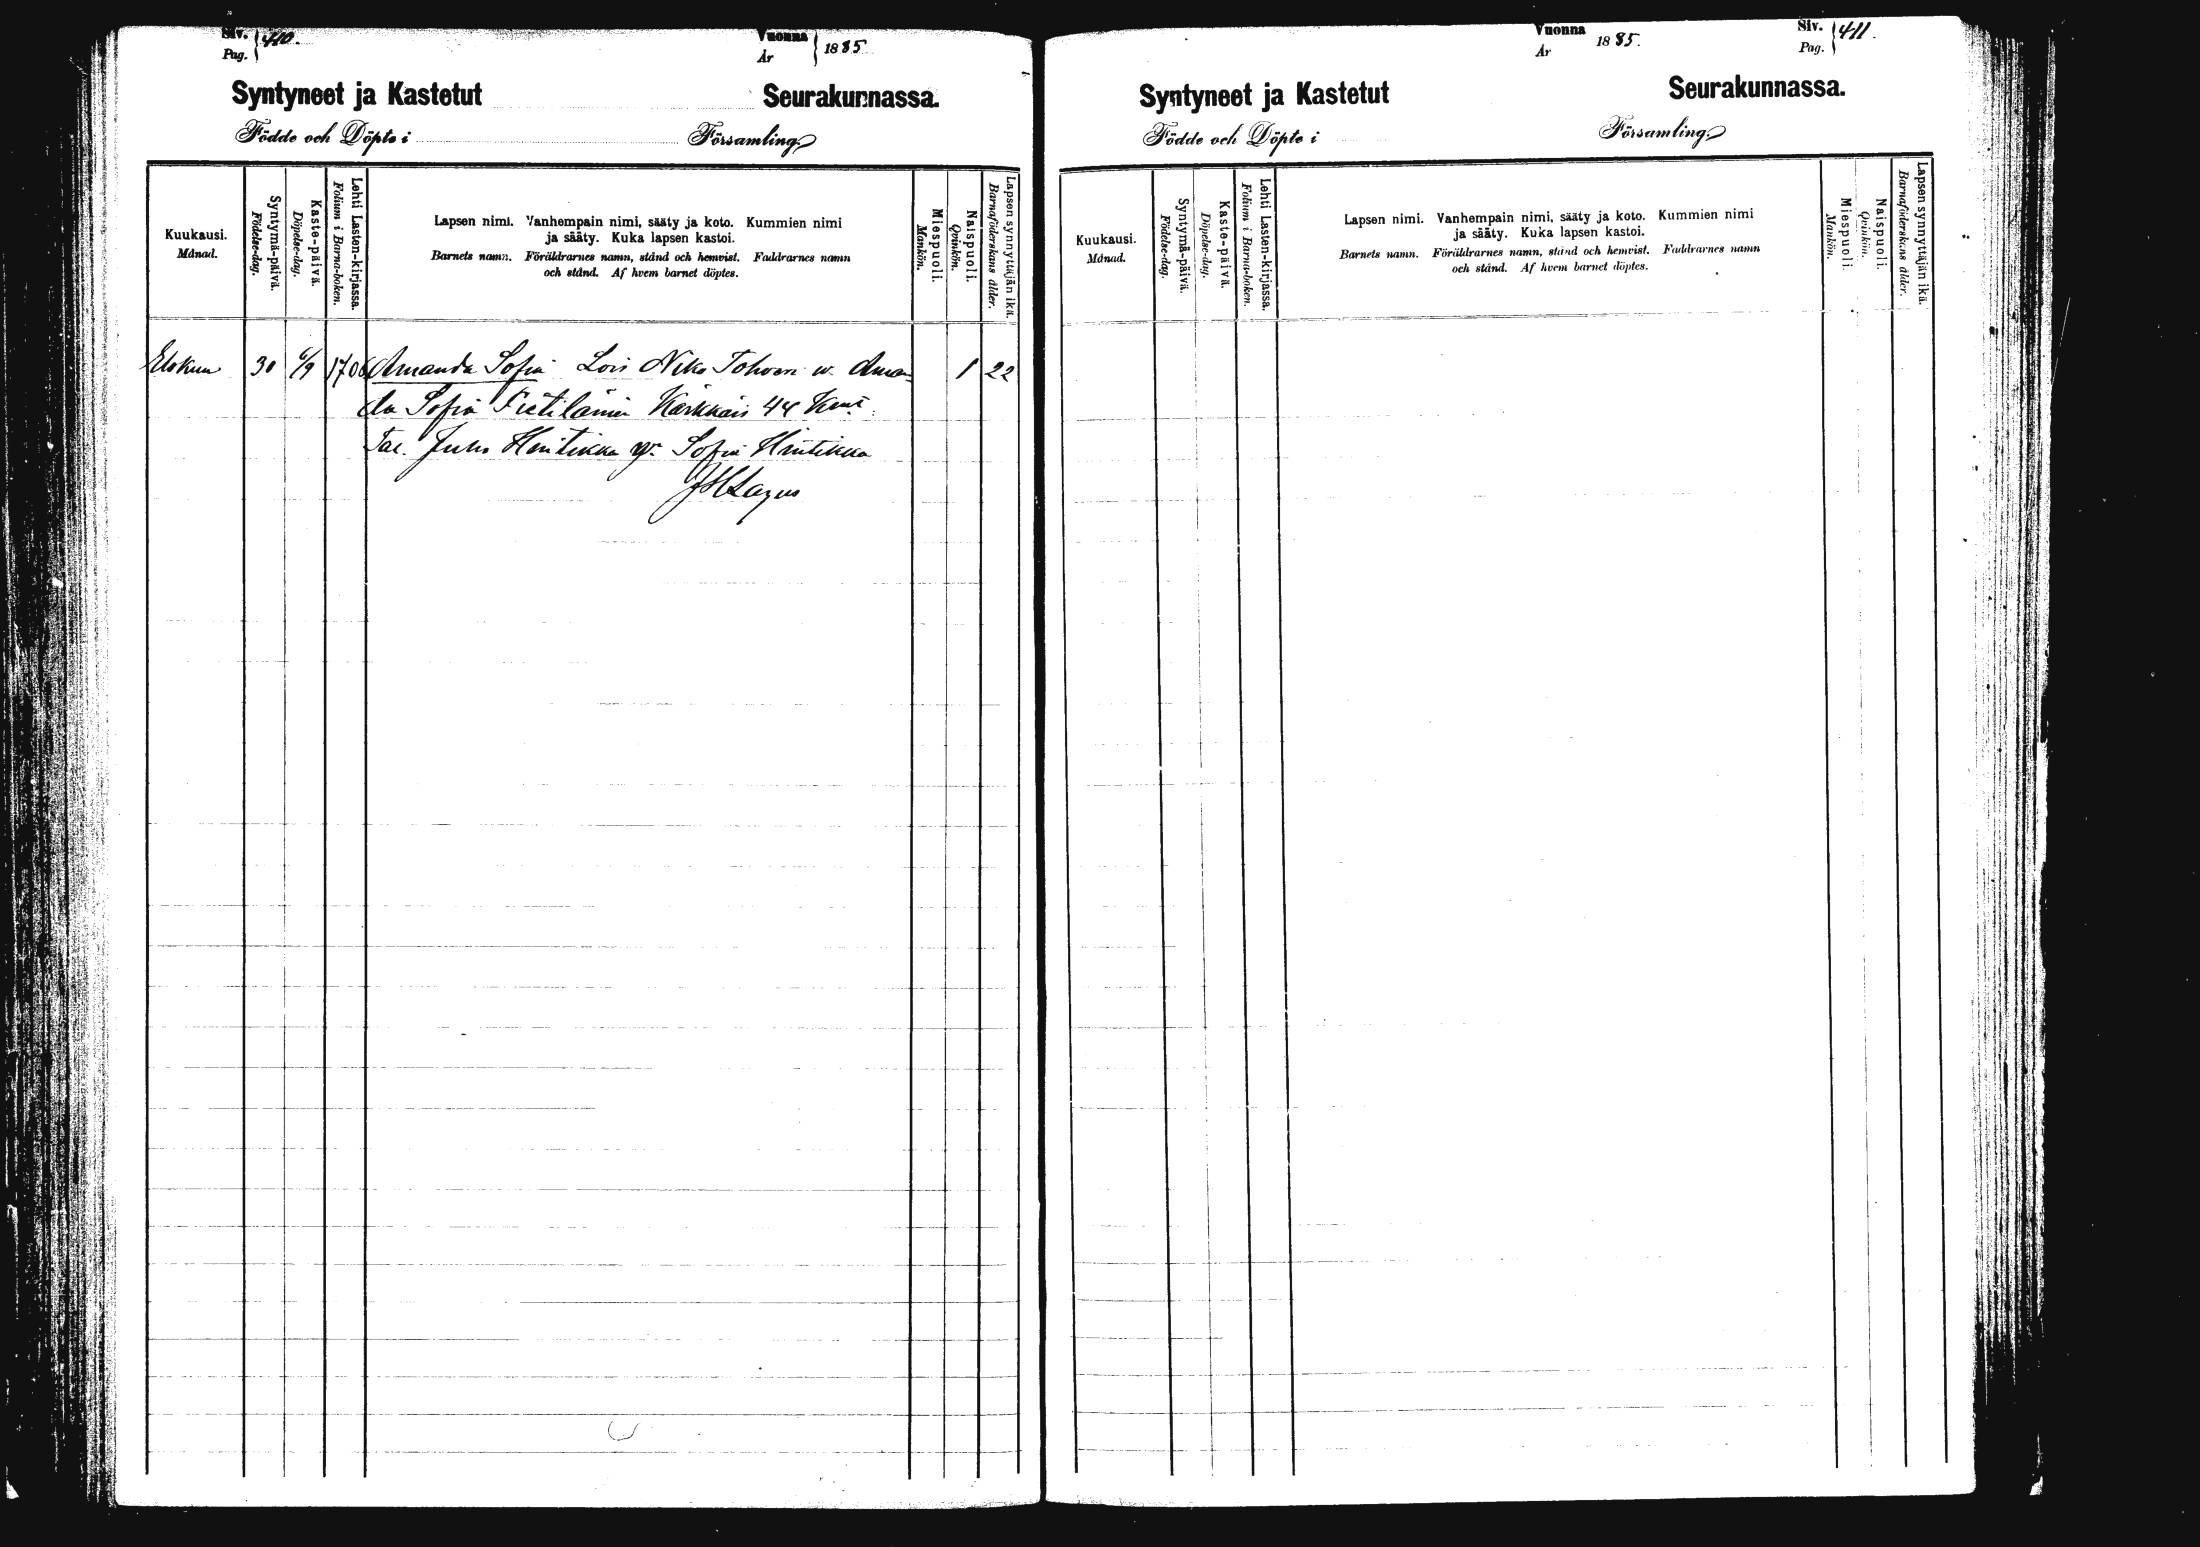 Siv. Pag. 410.
Vuonna År 1885
Syntyneet ja Kastetut Seurakunnassa.
Födde och Döpte i Församling.
Kuukausi. Månad.
Syntymä-päivä. Födelse-dag.
Kaste-päivä. Döpelse-dag.
Lehti Lasten-kirjassa. Folium i Barna-boken.
Lapsen nimi. Vanhempain nimi, sääty ja koto. Kummien nimi
ja sääty. Kuka lapsen kastoi.
Barnets namn. Föräldrarnes namn, stånd och hemvist. Faddrarnes namn
och stånd. Af hvem barnet döptes.
Miespuoli. Mankön.
Naispuoli. Qvinkön.
Lapsen synnyttäjän ikä. Barnaföderskans ålder.
Elokuu 30 6/9 1706 Amanda Sofia Lois Niko Tohveri w. Aman-
da Sofia Kärkkäis 44
Juho Hintikka Sofia Hintikka
JHLagus
Vuonna År 1885.
Siv. Pag. 411.
Syntyneet ja Kastetut Seurakunnassa.
Födde och Döpte i Församling.
Kuukausi. Månad.
Syntymä-päivä. Födelse-dag.
Kaste-päivä. Döpelse-dag.
Lehti Lasten-kirjassa. Folium i Barna-boken.
Lapsen nimi. Vanhempain nimi, sääty ja koto. Kummien nimi
ja sääty. Kuka lapsen kastoi.
Barnets namn. Föräldrarnes namn, stånd och hemvist. Faddrarnes namn
och stånd. Af hvem barnet döptes.
Miespuoli. Mankön.
Naispuoli. Qvinkön.
Lapsen synnyttäjän ikä. Barnaföderskans ålder.